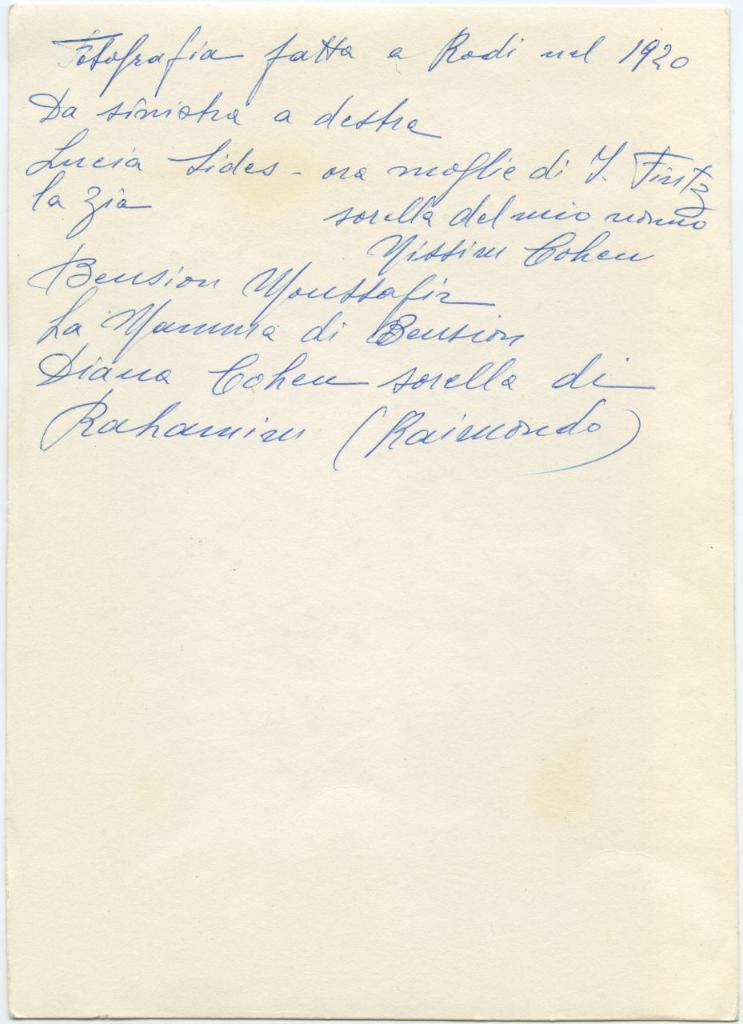 Fotografia fatta a Rodi nel 1920
Da sinistra a destra
Lucia Sides - ora moglie di Y. Fintz
la zia sorella del mio nonno
Nissim Cohen
Bension Moussafir
La Mamma di Bension
Diana Cohen sorella di
Rahamim (Raimondo)